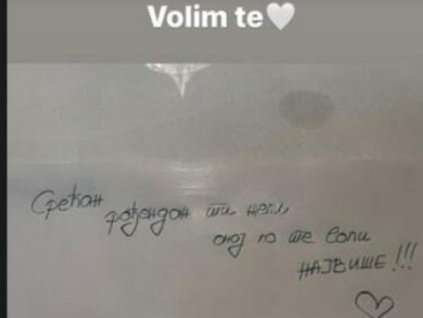 Volim te🤍
Срећан
рођендан ти жели
онај ко те воли
НАЈВИШЕ!!!